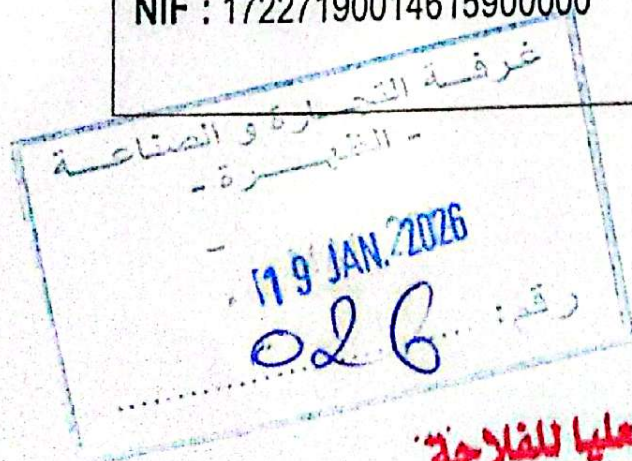 NIF : 17227190014615900000
غرفـة التجـارة و الصناعـة
- الظهـرة -
19 JAN. 2026
رقم : 026
عليا للفلاحة